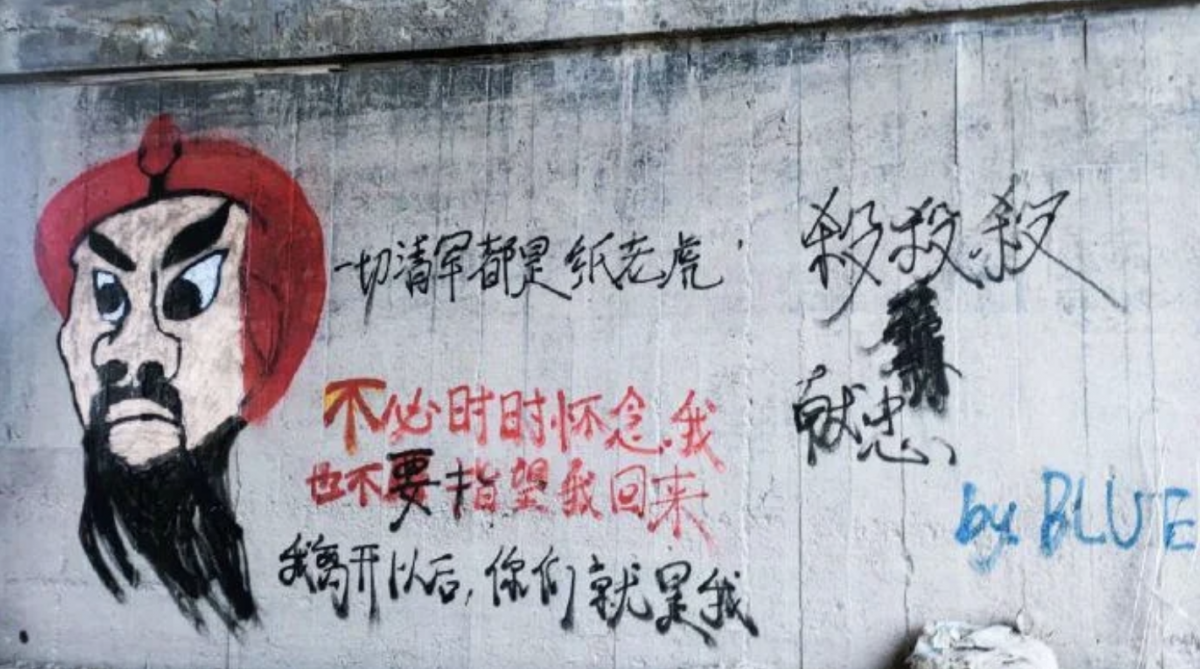 一切清军都是纸老虎,
不必时时怀念我
也不要指望我回来
我离开以后,你们就是我
殺殺殺
献忠
by BLUE